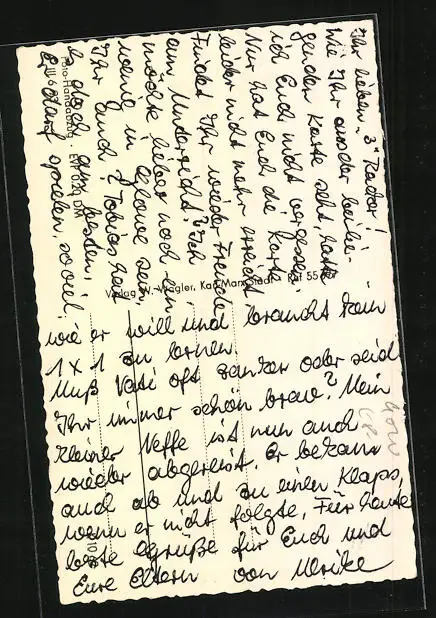 Ihr lieben "3" Racker!
Wie Ihr aus der beilie-
genden Karte seht, hatte
ich Euch nicht vergessen.
Nur hat Euch die Karte
leider nicht mehr erreicht.
Findet Ihr wieder Freude
am Unterricht? Ich
möchte lieber noch ein
wenig in sein.
Ihr Euch? Tobias hat
es doch am besten,
er darf spielen, soviel,
wie er will und braucht kein
1 x 1 zu lernen.
Muß Vati oft zanken oder seid
Ihr immer schön brav? Mein
kleiner Neffe ist nun auch
wieder abgereist. Er bekam
auch ab und zu einen Klaps,
wenn er nicht folgte. Für heute
beste Grüße für Euch und
Eure Eltern von Ulrike
Verlag W. Wagler, Karl-Marx-Stadt
Foto-Handabzug
EVP 0,20 DM